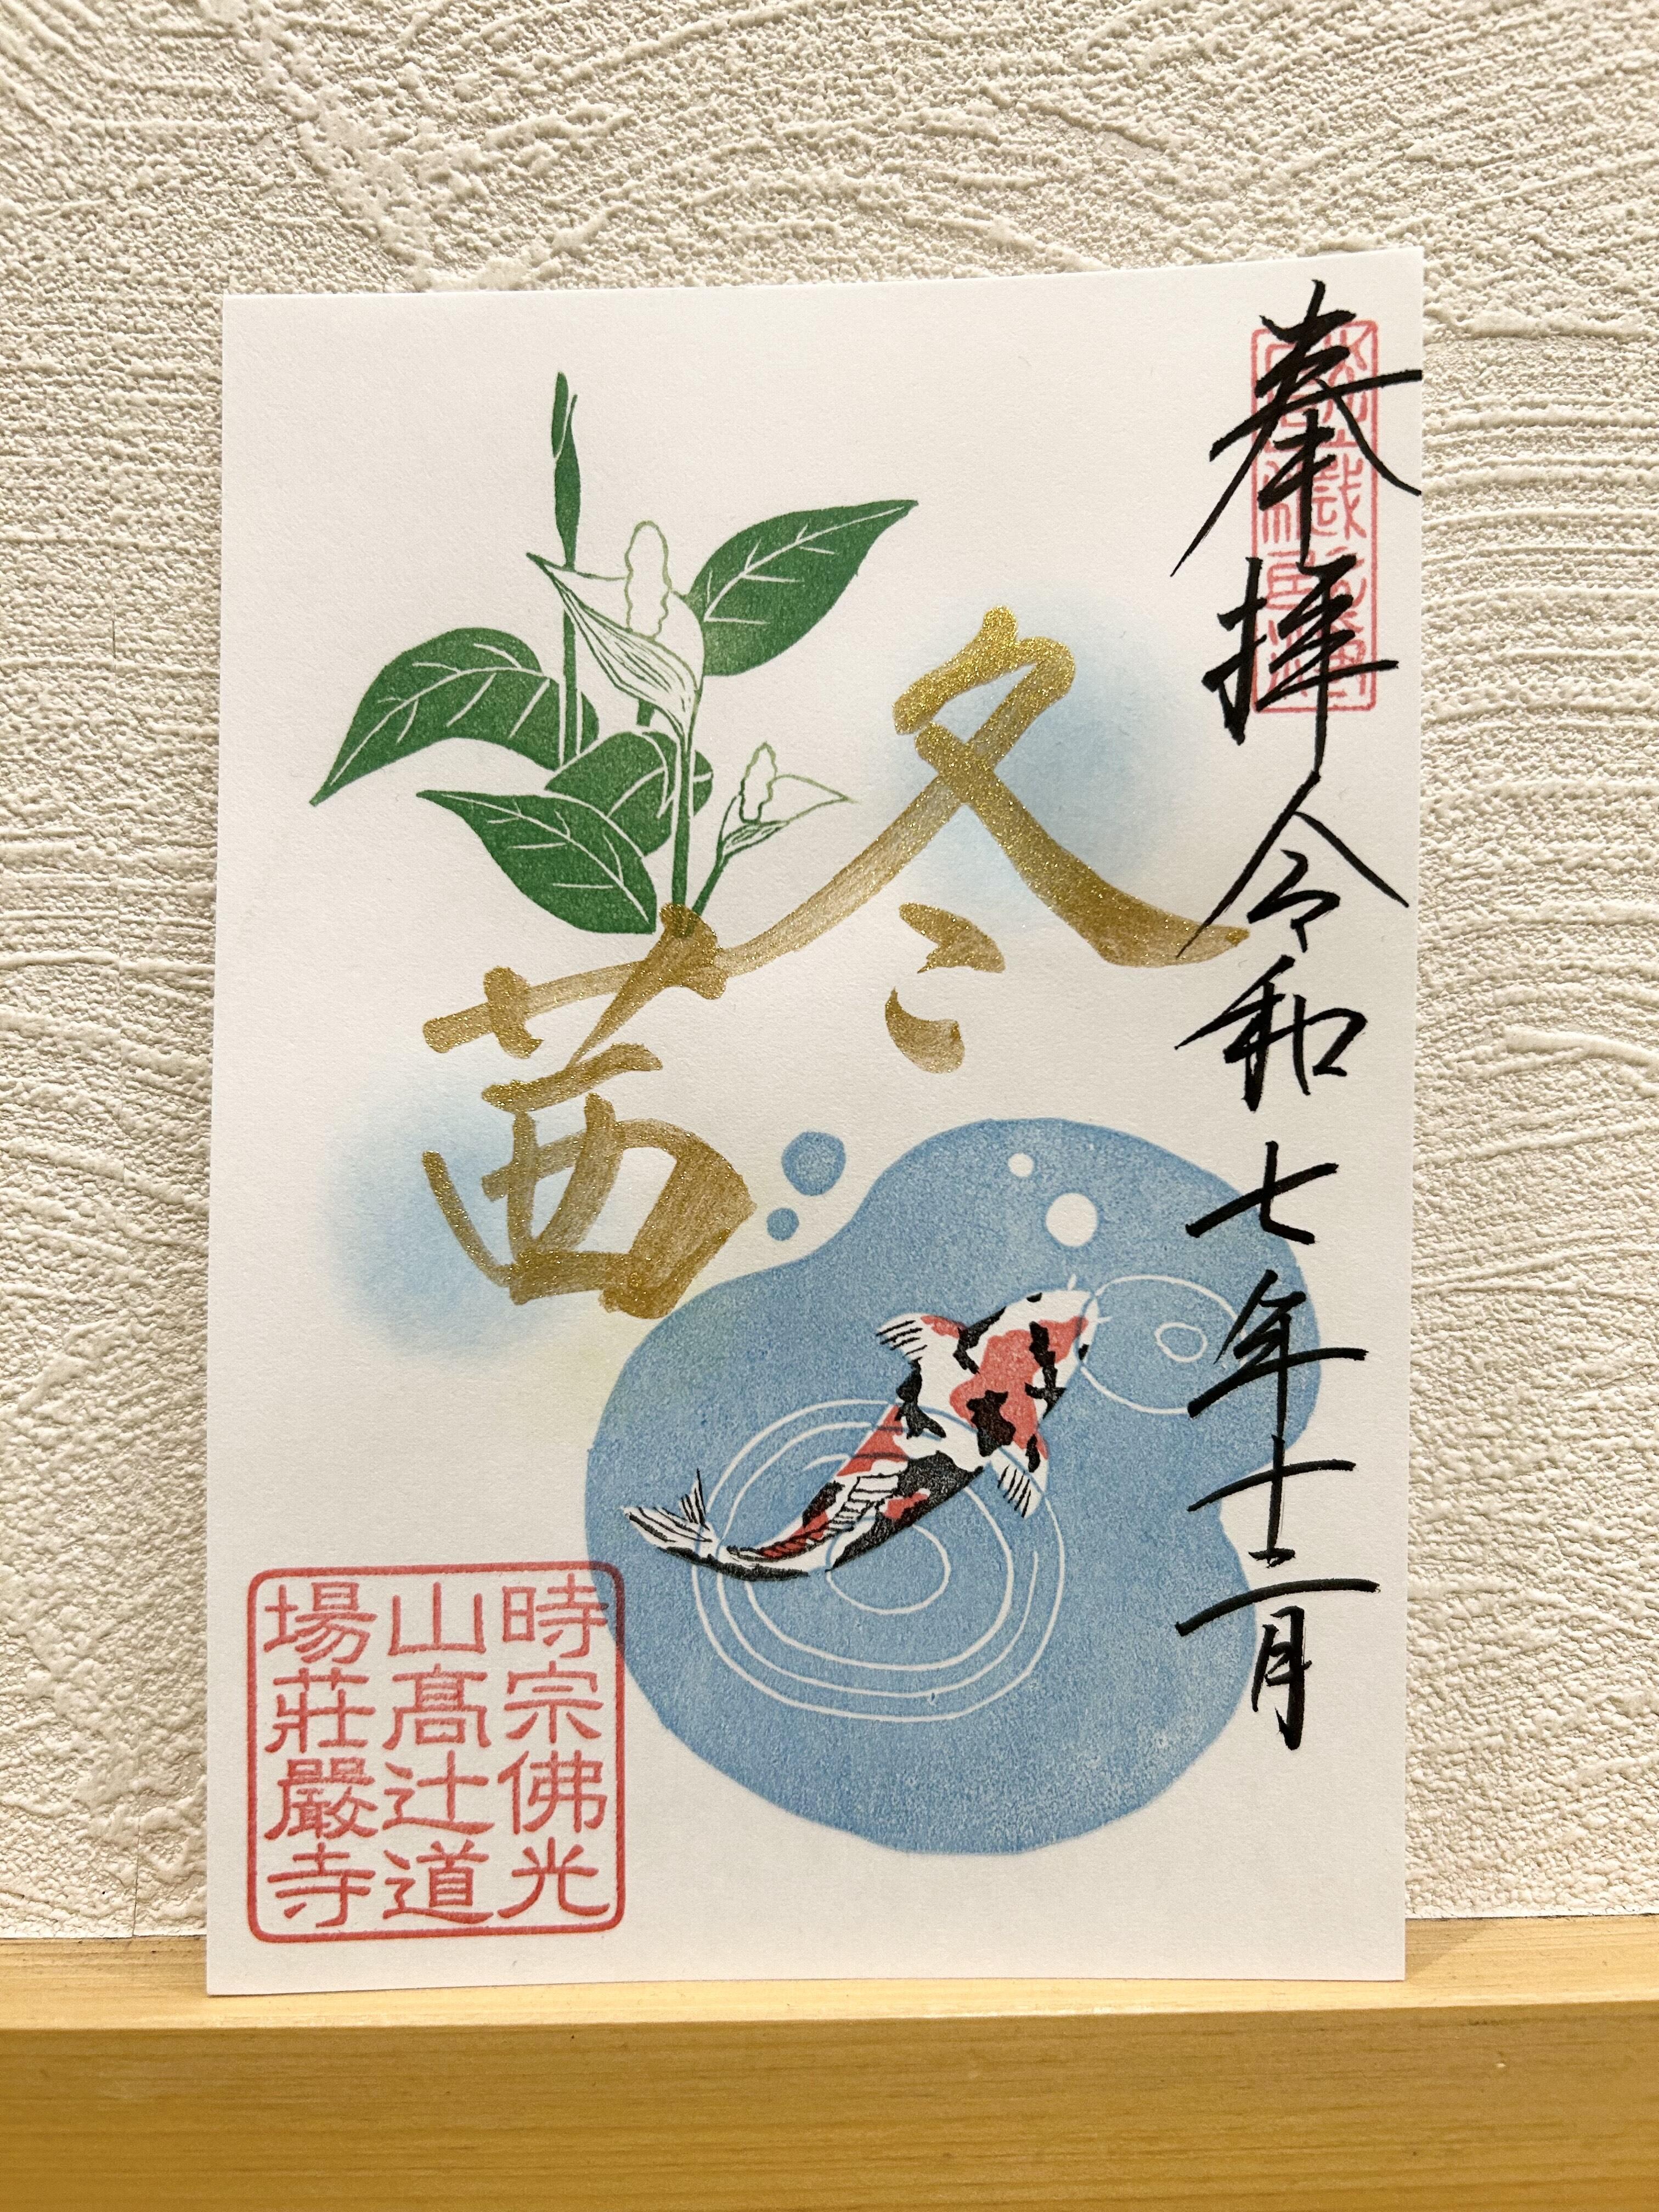 奉拝 令和七年十二月
冬
茜
時宗佛光
山髙辻道
場荘嚴寺